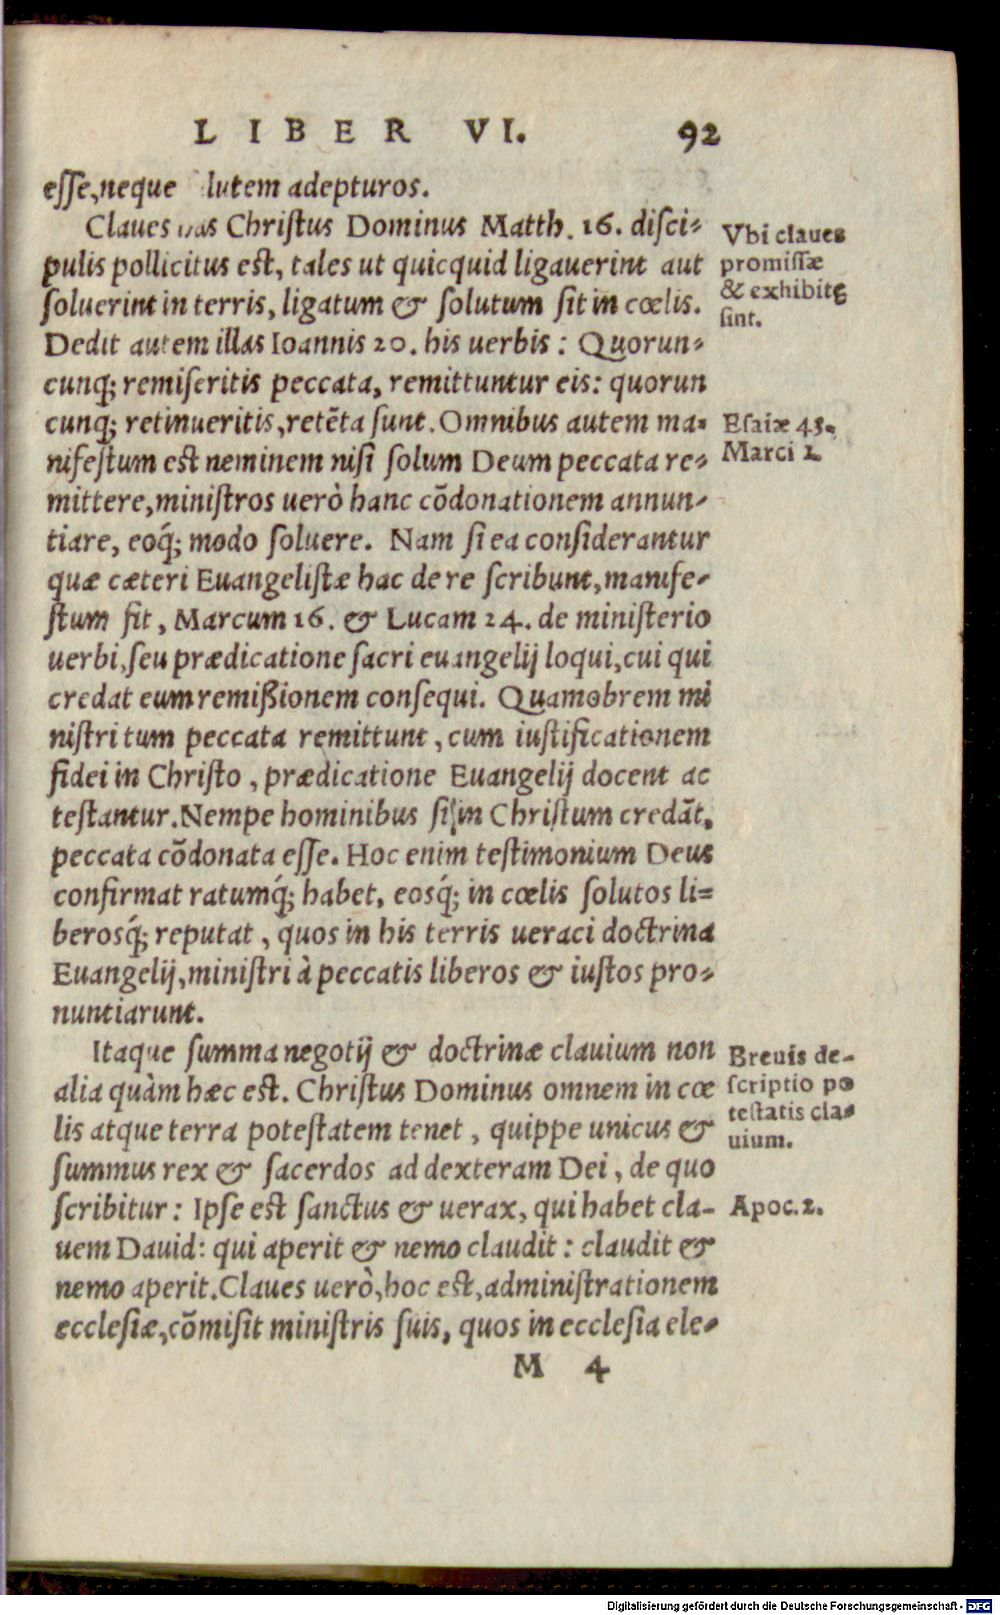 LIBER VI. 92
esse, neque lutem adepturos.
Claues has Christus Dominus Matth. 16. disci-
pulis pollicitus est, tales ut quicquid ligauerint aut
soluerint in terris, ligatum & solutum sit in cœlis.
Dedit autem illas Ioannis 20. his uerbis: Quorun-
cunq; remiseritis peccata, remittuntur eis: quorun
cunq; retinueritis, retēta sunt. Omnibus autem ma-
nifestum est neminem nisi solum Deum peccata re-
mittere, ministros uerò hanc cōdonationem annun-
tiare, eoq́; modo soluere. Nam si ea considerantur
quæ cæteri Euangelistæ hac de re scribunt, manife-
stum fit, Marcum 16. & Lucam 24. de ministerio
uerbi, seu prædicatione sacri euangelij loqui, cui qui
credat eum remißionem consequi. Quamobrem mi
nistri tum peccata remittunt, cum iustificationem
fidei in Christo, prædicatione Euangelij docent ac
testantur. Nempe hominibus si in Christum credāt,
peccata cōdonata esse. Hoc enim testimonium Deus
confirmat ratumq́; habet, eosq́; in cœlis solutos li-
berosq́; reputat, quos in his terris ueraci doctrina
Euangelij, ministri à peccatis liberos & iustos pro-
nuntiarunt.
Itaque summa negotij & doctrinæ clauium non
alia quàm hæc est. Christus Dominus omnem in cœ
lis atque terra potestatem tenet, quippe unicus &
summus rex & sacerdos ad dexteram Dei, de quo
scribitur: Ipse est sanctus & uerax, qui habet cla-
uem Dauid: qui aperit & nemo claudit: claudit &
nemo aperit. Claues uerò, hoc est, administrationem
ecclesiæ, cōmisit ministris suis, quos in ecclesia ele-
M 4
Vbi claues
promissæ
& exhibitę
sint.
Esaiæ 43.
Marci 2.
Breuis de-
scriptio po
testatis cla-
uium.
Apoc. 2.
Digitalisierung gefördert durch die Deutsche Forschungsgemeinschaft - DFG